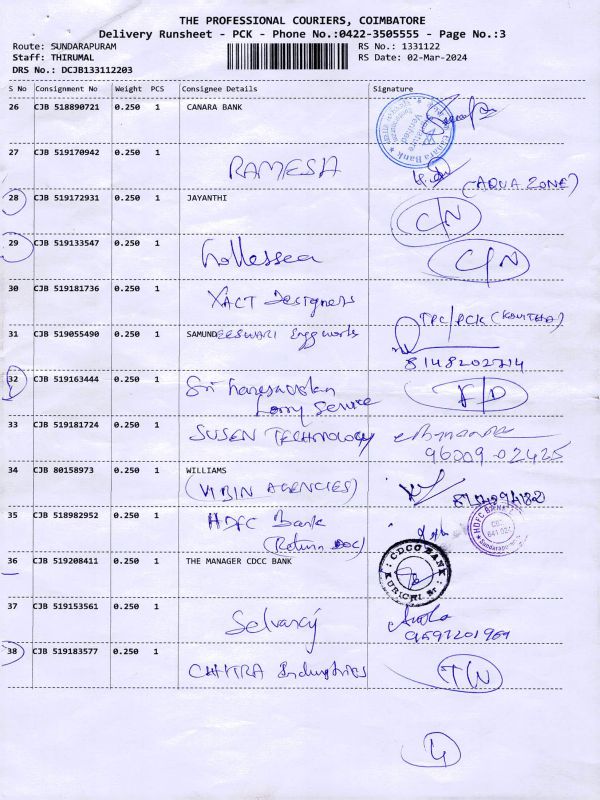 THE PROFESSIONAL COURIERS, COIMBATORE
Delivery Runsheet - PCK - Phone No.:0422-3505555 - Page No.:3
Route: SUNDARAPURAM
RS No.: 1331122
Staff: THIRUMAL
RS Date: 02-Mar-2024
DRS No.: DCJB133112203
S No Consignment No Weight PCS Consignee Details Signature
26 CJB 518890721 0.250 1 CANARA BANK
27 CJB 519170942 0.250 1
RAMESH
(AQUA ZONE)
28 CJB 519172931 0.250 1 JAYANTHI
C/N
29 CJB 519133547 0.250 1
C/N
30 CJB 519181736 0.250 1
XACT Designers
TPC/PCK
31 CJB 519055490 0.250 1 SAMUNDEESWARI Engg works
8148202714
32 CJB 519163444 0.250 1
Sri
Lorry Service
F/D
33 CJB 519181724 0.250 1
SUSEN TECHNOLOGY
96009-02425
34 CJB 80158973 0.250 1 WILLIAMS
(VIBIN AGENCIES)
35 CJB 518982952 0.250 1
HDFC Bank
(Return Doc)
HDFC BANK
36 CJB 519208411 0.250 1 THE MANAGER CDCC BANK
CDCC BANK
KURICHI Br
37 CJB 519153561 0.250 1
Selvaraj
38 CJB 519183577 0.250 1
CHITRA Industries
4